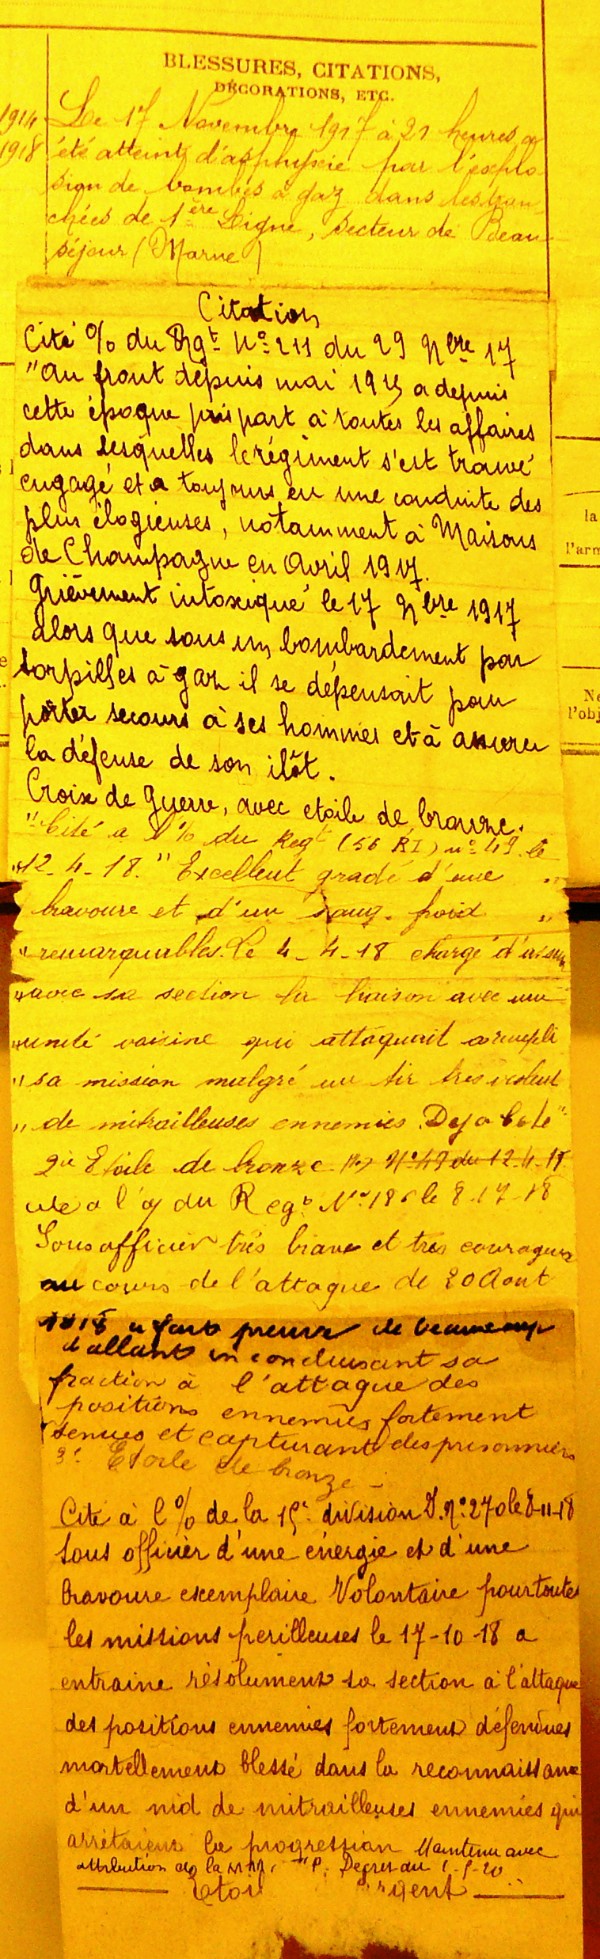 BLESSURES, CITATIONS,
DÉCORATIONS, ETC.
1914 Le 17 Novembre 1917 à 21 heures a
1918 été atteint d'asphyxie par l'explo
sion de bombes à gaz dans les tran
chées de 1ère Ligne, secteur de Beau
séjour (Marne)
Citation
Cité % du Rgt No 211 du 29 9bre 17
"au front depuis mai 1915 a depuis
cette époque pris part à toutes les affaires
dans lesquelles le régiment s'est trouvé
engagé et a toujours eu une conduite des
plus élogieuses, notamment à Maisons
de Champagne en Avril 1917.
Grièvement intoxiqué le 17 9bre 1917
alors que sous un bombardement par
torpilles à gaz il se dépensait pour
porter secours à ses hommes et à assurer
la défense de son ilôt.
Croix de Guerre, avec etoile de bronze.
"Cité a l'% du Regt (56 RI) no 49 le
12-4-18. "Excellent gradé d'une
bravoure et d'un sang-froid "
"remarquables. Le 4-4-18 chargé d'assurer
"avec sa section la liaison avec une
"unité voisine qui attaquait a rempli
"sa mission malgré un tir très violent
"de mitrailleuses ennemies. "
2ie Etoile de bronze No 49 du 12-4-18
cité a l'% du Regt No le
Sous officier très brave et très courageux
au cours de l'attaque de 20 Aout
1918 a fait preuve de beaucoup
d'allant en conduisant sa
fraction à l'attaque des
positions ennemies fortement
tenues et capturant des prisonniers
3e Etoile de bronze -
Cité à l'% de la 15e division D. No 270 le 8-11-18
Sous officier d'une énergie et d'une
bravoure exemplaire Volontaire pour toutes
les missions perilleuses le 17-10-18 a
entrainé résolument sa section à l'attaque
des positions ennemies fortement défendues
mortellement blessé dans la reconnaissance
d'un nid de mitrailleuses ennemies qui
arrêtaient la progression Maintenu avec
attribution de la MM. Decret du
Etoi rgent
la
l'arm
Ne
l'obj